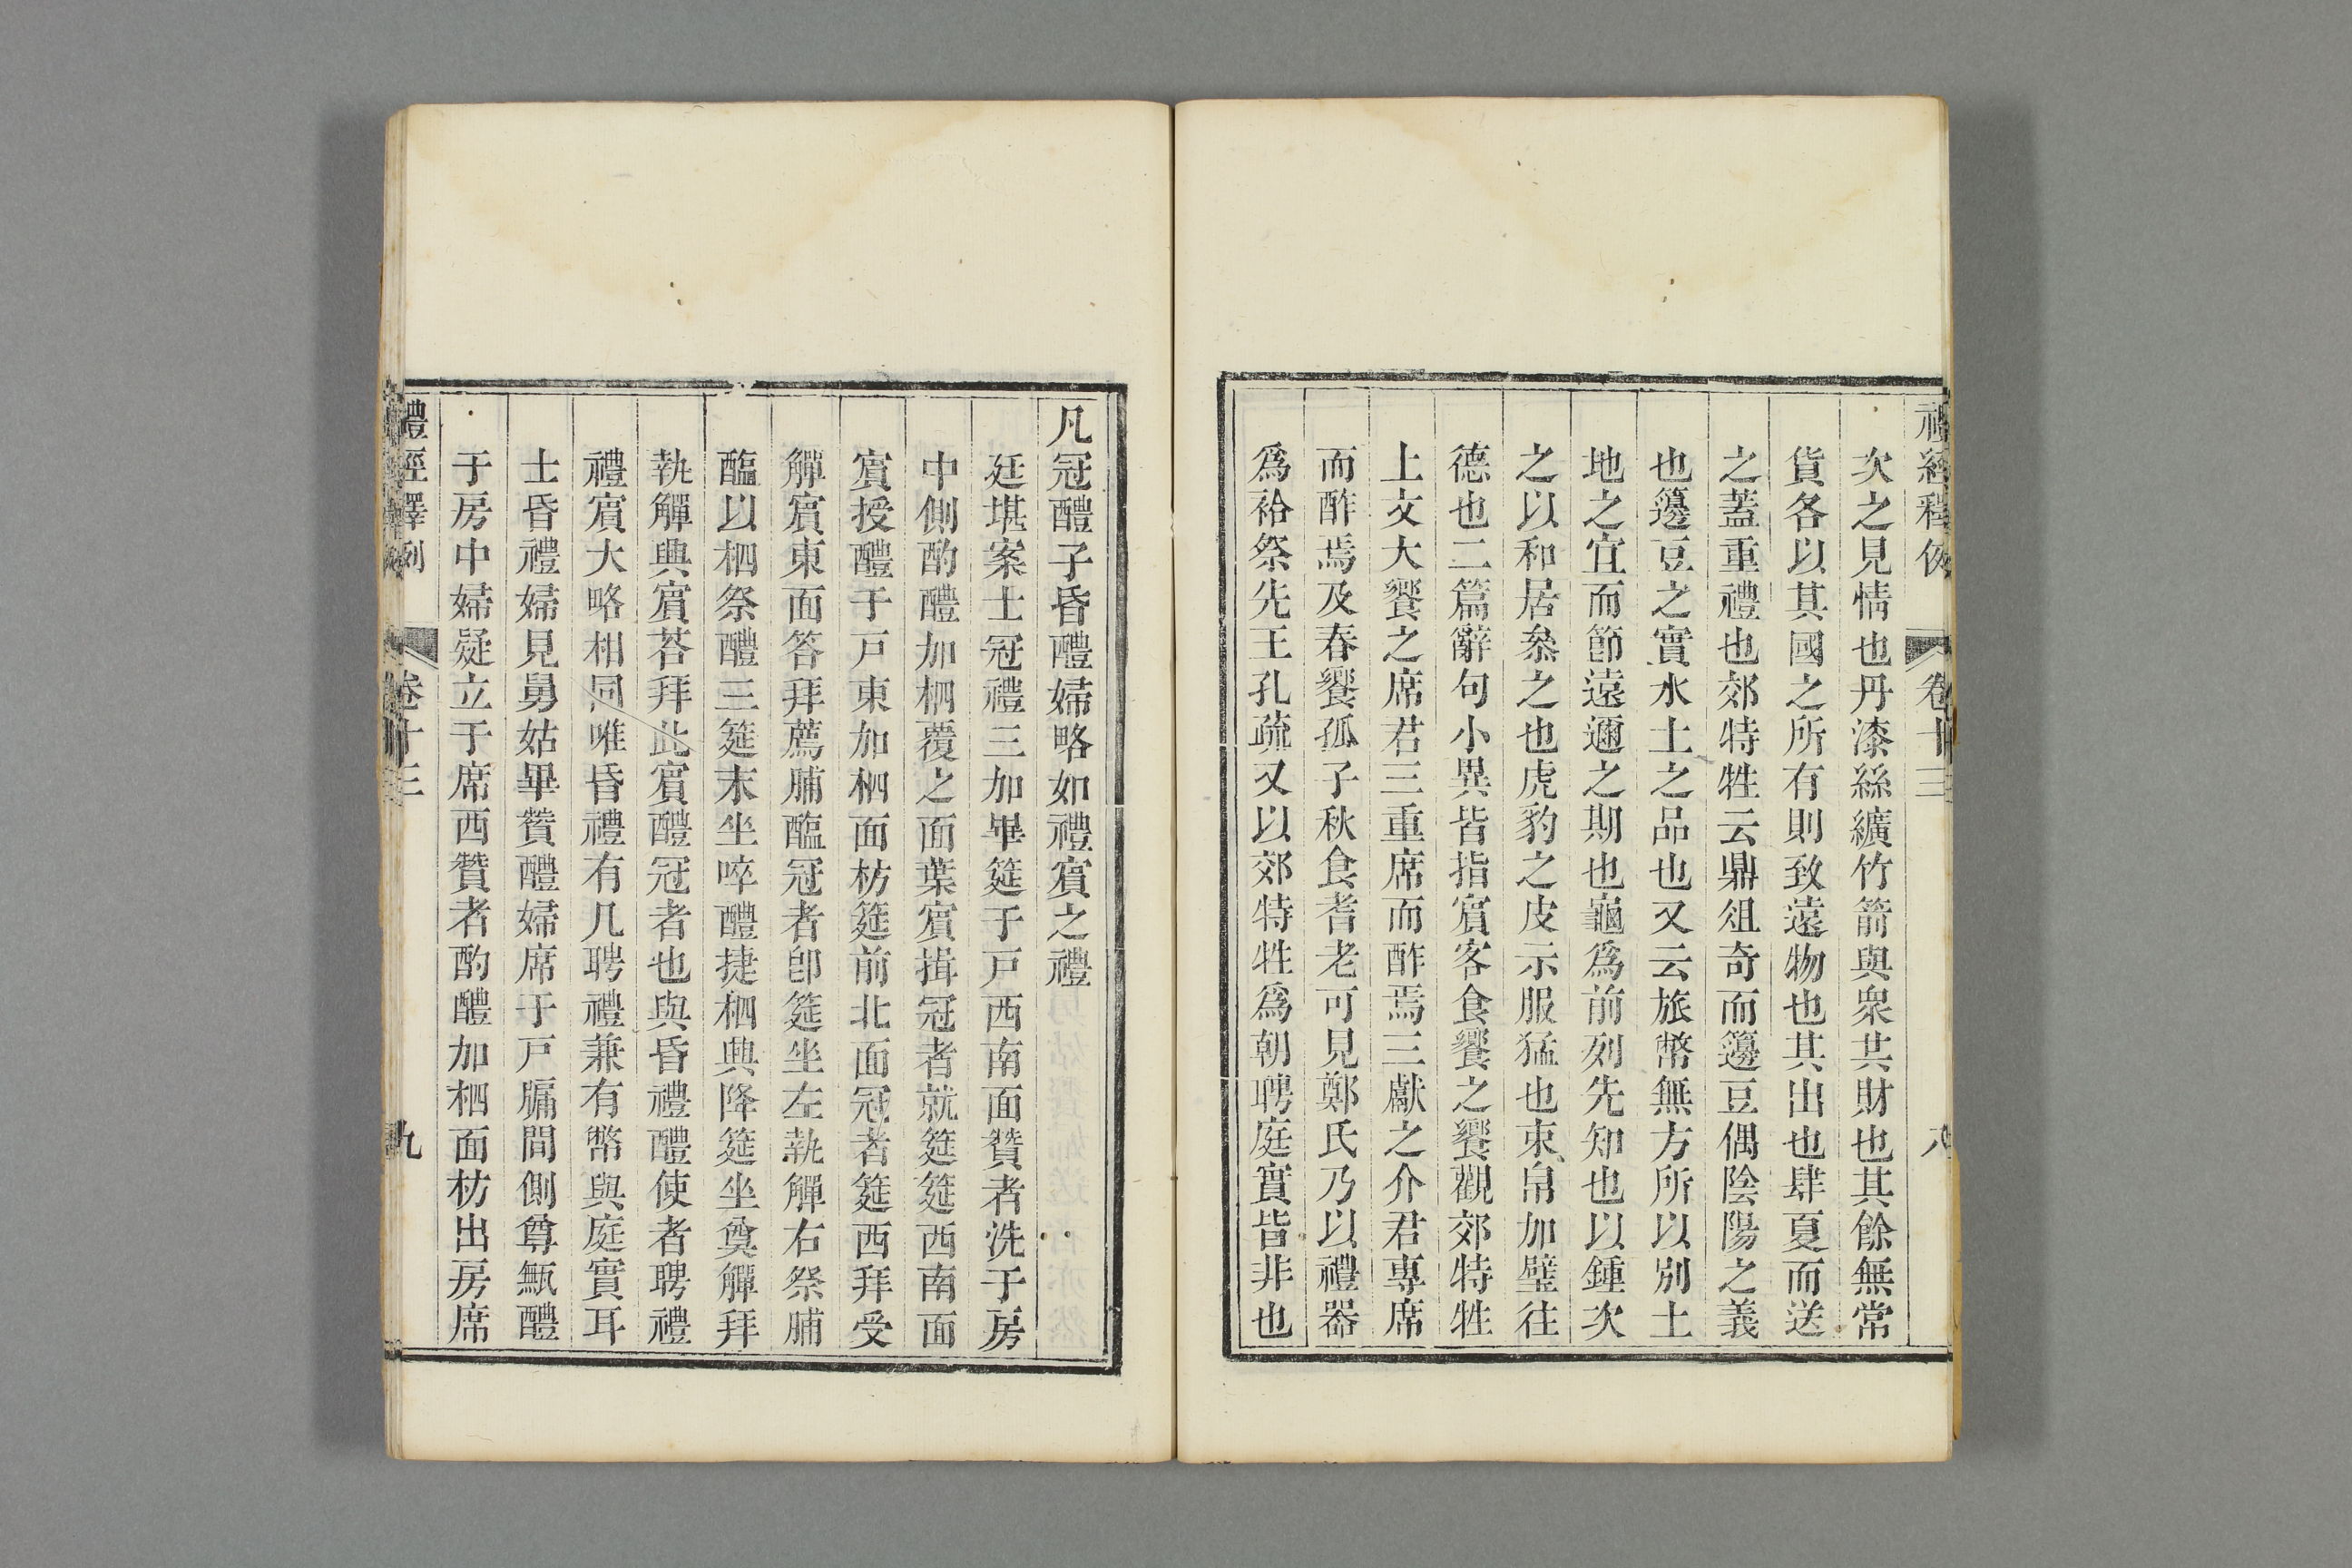 禮經釋例 卷十三 八
次之見情也丹漆絲纊竹箭與衆共財也其餘無常
貨各以其國之所有則致遠物也其出也肆夏而送
之蓋重禮也郊特牲云鼎俎奇而籩豆偶陰陽之義
也籩豆之實水土之品也又云旅幣無方所以別土
地之宜而節遠邇之期也龜爲前列先知也以鍾次
之以和居參之也虎豹之皮示服猛也束帛加璧往
德也二篇辭句小異皆指賓客食饗之饗觀郊特牲
上文大饗之席君三重席而酢焉三獻之介君專席
而酢焉及春饗孤子秋食耆老可見鄭氏乃以禮器
爲祫祭先王孔疏又以郊特牲爲朝聘庭實皆非也
凡冠醴子昏醴婦略如禮賓之禮
廷堪案士冠禮三加畢筵于戸西南面贊者洗于房
中側酌醴加柶覆之面葉賓揖冠者就筵筵西南面
賓授醴于戸東加柶面枋筵前北面冠者筵西拜受
觶賓東面答拜薦脯醢冠者卽筵坐左執觶右祭脯
醢以柶祭醴三筵末坐啐醴捷柶興降筵坐奠觶拜
執觶興賓荅拜此賓醴冠者也與昏禮醴使者聘禮
禮賓大略相同唯昏禮有几聘禮兼有幣與庭實耳
士昏禮婦見舅姑畢贊醴婦席于戸牖間側尊甒醴
于房中婦疑立于席西贊者酌醴加柶面枋出房席
禮經釋例 卷十三 九